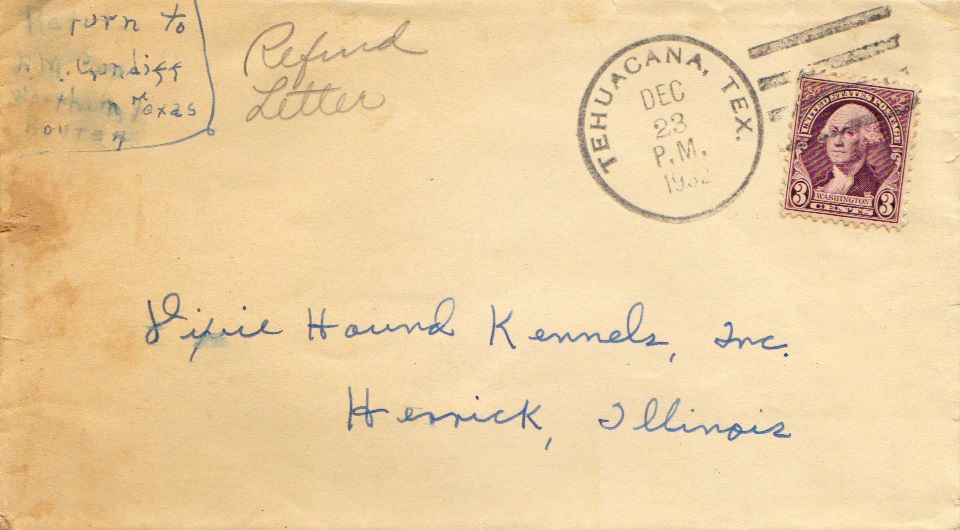 Return to
Cundiff
Texas
Refund
Letter
TEHUACANA, TEX.
DEC
23
P.M.
1932
UNITED STATES POSTAGE
3 WASHINGTON 3
CENTS
Dixie Hound Kennels, Inc.
Herrick, Illinois